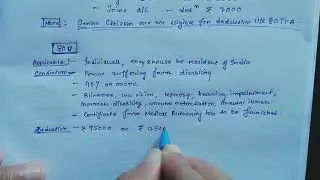 - Joint A/C - dedn ₹ 7000
Note: Senior Citizen are not eligible for deduction U/s 80TTA
80U
Applicable: Individuals, they should be resident of India
Conditions - Person suffering from disability
- 40% or more
- Blindness, low vision, leprosy, hearing impairment,
locomotor disability, mental retardation, mental illness
- Certificate from Medical Authority has to be furnished.
Deduction - ₹ 75000 or ₹ 1250